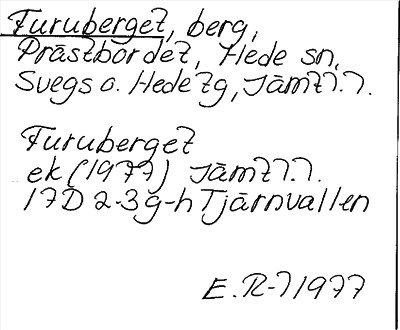 Furuberget, berg,
Prästbordet, Hede sn,
Svegs o. Hede tg, Jämtl.l.
Furuberget
ek (1977) Jämtl.l.
17D 2-3 g-h Tjärnvallen
E. R-l 1977